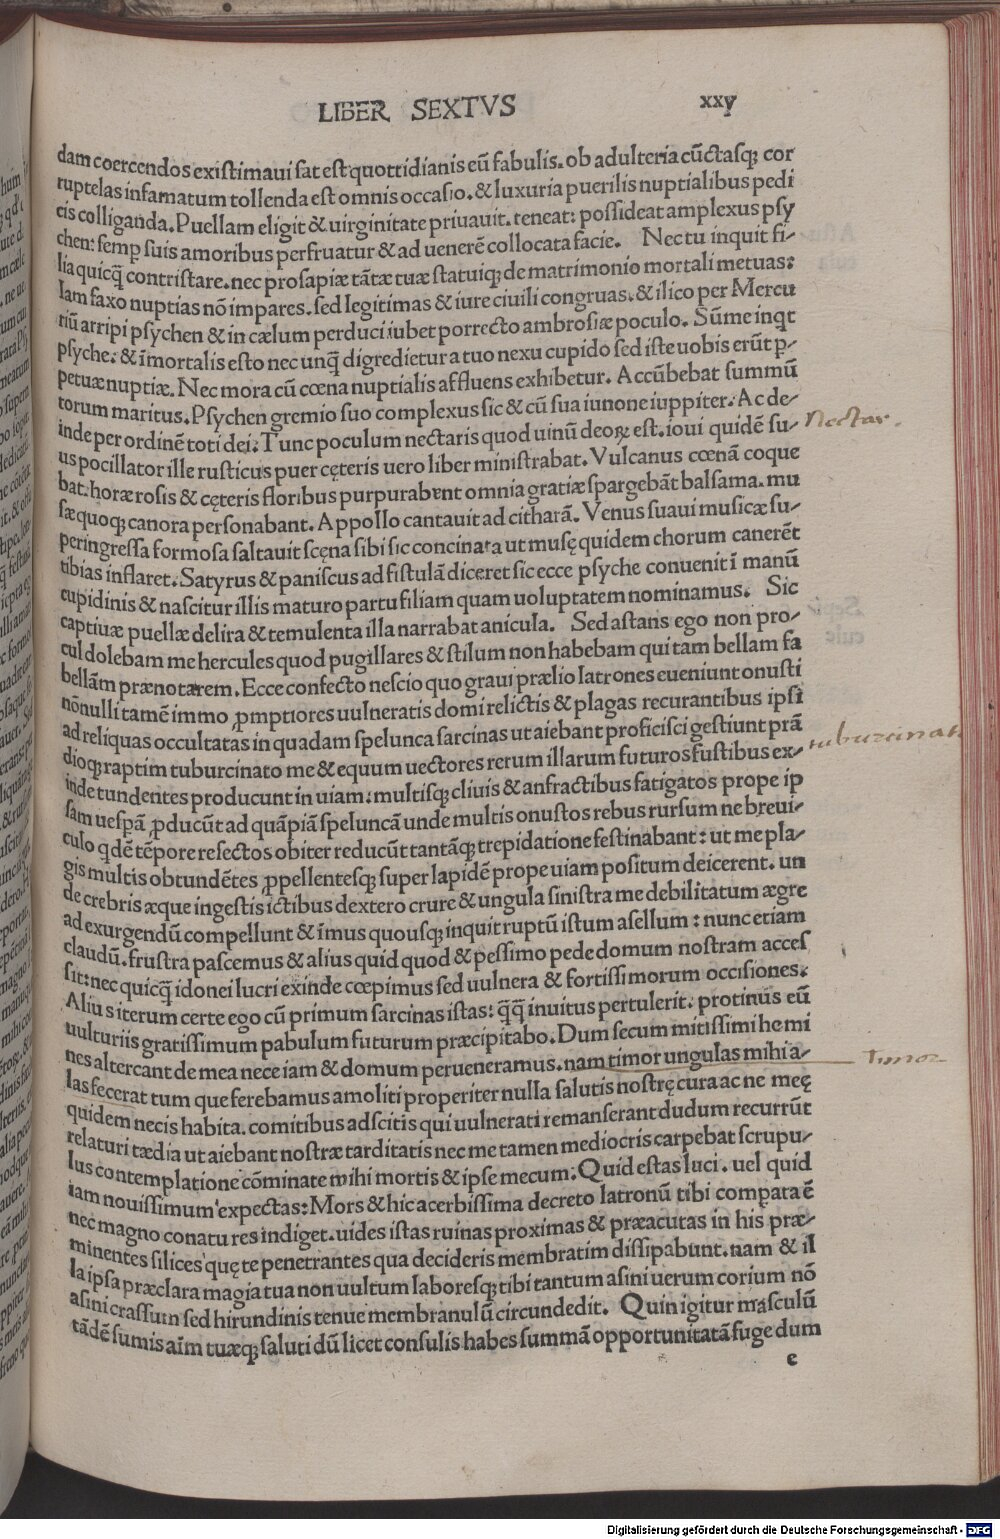 LIBER SEXTVS xxv
dam coercendos existimaui sat est quottidianis eū fabulis. ob adulteria cūctasq; cor
ruptelas infamatum tollenda est omnis occasio. & luxuria puerilis nuptialibus pedi
cis colliganda. Puellam eligit & uirginitate priuauit. teneat: possideat amplexus psy
chen: semꝑ suis amoribus perfruatur & ad uenerē collocata facie. Nec tu inquit fi-
lia quicq̄ contristare. nec prosapiæ tātæ tuæ statuiq; de matrimonio mortali metuas:
Iam faxo nuptias nō impares. sed legitimas & iure ciuili congruas. & ilico per Mercu
riū arripi psychen & in cælum perduci iubet porrecto ambrosiæ poculo. Sūme inqt
psyche: & īmortalis esto nec unq̄ digredietur a tuo nexu cupido sed iste uobis erūt p-
petuæ nuptiæ. Nec mora cū cœna nuptialis affluens exhibetur. Accūbebat summū
torum maritus. Psychen gremio suo complexus sic & cū sua iunone iuppiter. Ac de-
inde per ordinē toti dei. Tunc poculum nectaris quod uinū deoꝝ est. ioui quidē su- Nectar.
us pocillator ille rusticus puer cęteris uero liber ministrabat. Vulcanus cœnā coque
bat. horæ rosis & cęteris floribus purpurabent omnia gratiæ spargebāt balsama. mu
sæ quoq; canora personabant. Appollo cantauit ad citharā. Venus suaui musicæ su-
peringressa formosa saltauit scęna sibi sic concinata ut musę quidem chorum canerēt
tibias inflaret. Satyrus & paniscus ad fistulā diceret sic ecce psyche conuenit ī manū
cupidinis & nascitur illis maturo partu filiam quam uoluptatem nominamus. Sic
captiuæ puellæ delira & temulenta illa narrabat anicula. Sed astans ego non pro-
cul dolebam me hercules quod pugillares & stilum non habebam qui tam bellam fa
bellām prænotarem. Ecce confecto nescio quo graui prælio latrones eueniunt onusti
nōnulli tamē immo ꝓmptiores uulneratis domi relictis & plagas recurantibus ipsi
ad reliquas occultatas in quadam spelunca sarcinas ut aiebant proficisci gestiunt prā
dioq; raptim tuburcinato me & equum uectores rerum illarum futuros fustibus ex- tuburcinat
inde tundentes producunt in uiam. multisq; cliuis & anfractibus fatigatos prope ip
sam uesꝑā ꝓducūt ad quāpiā speluncā unde multis onustos rebus rursum ne breui-
culo qdē tēpore refectos obiter reducūt tantāq; trepidatione festinabant: ut me pla-
gis multis obtundētes ꝓpellentesq; super lapidē prope uiam positum deicerent. un
de crebris æque ingestis ictibus dextero crure & ungula sinistra me debilitatum ægre
ad exurgendū compellunt & īmus quousq; inquit ruptū istum asellum: nunc etiam
claudū. frustra pascemus & alius quid quod & pessimo pede domum nostram acces
sit: nec quicq̄ idonei lucri exinde cœpimus sed uulnera & fortissimorum occisiones.
Alius iterum certe ego cū primum sarcinas istas: q̄q̄ inuitus pertulerit. protinus eū
uulturiis gratissimum pabulum futurum præcipitabo. Dum secum mitissimi homi
nes altercant de mea nece iam & domum perueneramus. nam timor ungulas mihi a- Timor
las fecerat tum que ferebamus amoliti properiter nulla salutis nostrę cura ac ne meę
quidem necis habita. comitibus adscitis qui uulnerati remanserant dudum recurrūt
relaturi tædia ut aiebant nostræ tarditatis nec me tamen mediocris carpebat scrupu-
lus contemplatione cōminatæ mihi mortis & ipse mecum. Quid estas luci. uel quid
iam nouissimum expectas: Mors & hic acerbissima decreto latronū tibi comparata ē
nec magno conatu res indiget. uides istas ruinas proximas & præacutas in his præ-
minentes silices quę te penetrantes qua decideris membratim dissipabunt. nam & il
la ipsa præclara magia tua non uultum laboresq; tibi tantum asini uerum corium nō
asini crassum sed hirundinis tenue membranulū circundedit. Quin igitur masculū
tādē sumis aīm tuæq; saluti dū licet consulis habes summā opportunitatā fuge dum
e
Digitalisierung gefördert durch die Deutsche Forschungsgemeinschaft - DFG